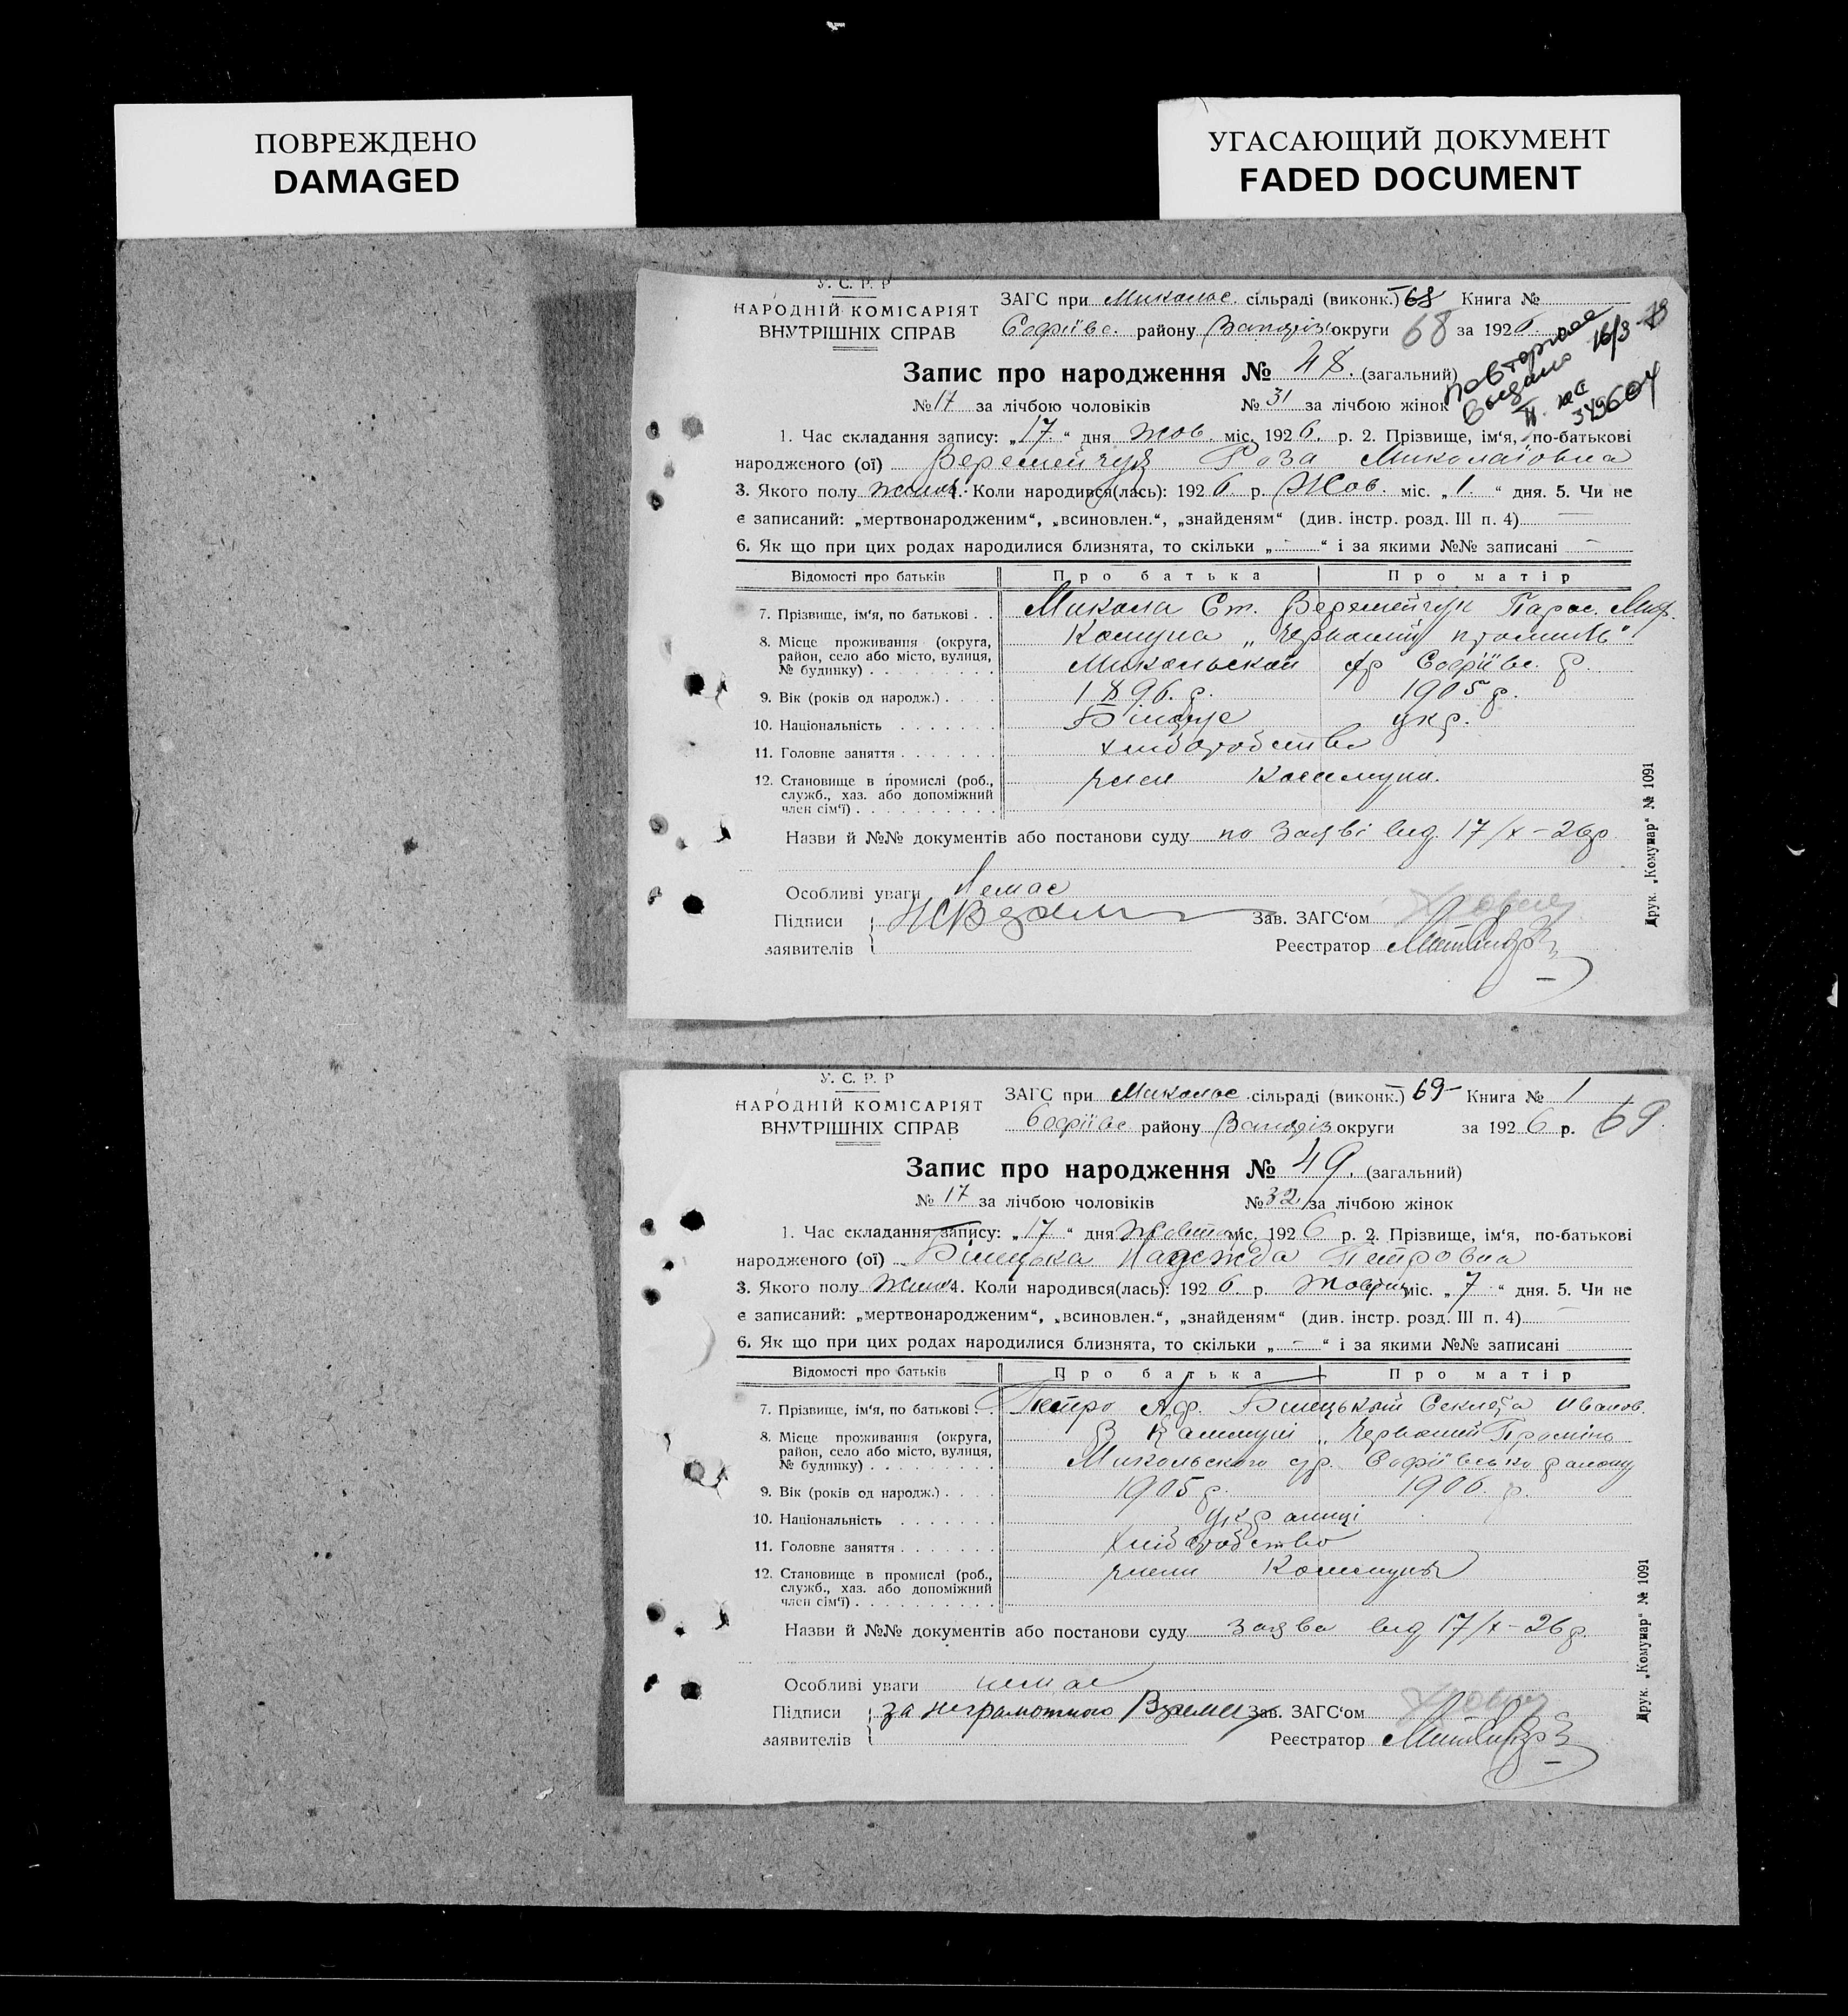 ПОВРЕЖДЕНО
DAMAGED
УГАСАЮЩИЙ ДОКУМЕНТ
FADED DOCUMENT
У. С. Р. Р
НАРОДНІЙ КОМІСАРІЯТ
ВНУТРІШНІХ СПРАВ
ЗАГС при Микольс. сільраді (виконк.) 68 Книга №
Софіївс. району округи 68 за 1926
Запис про народження № 48. (загальний)
повторное
выдано 16/3
349604
№ 17 за лічбою чоловіків № 31 за лічбою жінок
1. Час складання запису: „17“ дня жов. міс. 1926. р. 2. Прізвище, ім‘я, по-батькові
народженого (ої) Веремейчук Роза Миколаївна
3. Якого полу жіноч. 4. Коли народився(лась): 1926 р. Жов. міс. „1.“ дня. 5. Чи не
є записаний: „мертвонародженим“, „всиновлен.“, „знайденям“ (див. інстр. розд. III п. 4)
6. Як що при цих родах народилися близнята, то скільки „-“ і за якими №№ записані -
Відомості про батьків Про батька Про матір
7. Прізвище, ім‘я, по батькові . . Микола Ст. Веремейчук Парас.
8. Місце проживання (округа, район, село або місто, вулиця, № будинку) Комуна „Червоний промінь“
Микольской с/р Софіївс. р.
9. Вік (років од народж.) . . . . 1896. р. 1905 р.
10. Національність . . . . . . . укр.
11. Головне заняття . . . . . . . хліборобство
12. Становище в промислі (роб., служб., хаз. або допоміжний член сім‘ї) члени Коммуни.
Назви й №№ документів або постанови суду по заяві від 17/X-26р.
Особливі уваги Немає
Підписи заявителів
Зав. ЗАГС‘ом
Реєстратор
Друк. „Комунар“ № 1091
У. С. Р. Р
НАРОДНІЙ КОМІСАРІЯТ
ВНУТРІШНІХ СПРАВ
ЗАГС при Микольс. сільраді (виконк.) 69 Книга № 1
Софіївс району округи за 1926 р. 69
Запис про народження № 49. (загальний)
№ 17 за лічбою чоловіків № 32 за лічбою жінок
1. Час складання запису: „17“ дня міс. 1926 р. 2. Прізвище, ім‘я, по-батькові
народженого (ої) Білецька Надежда Петровна
3. Якого полу жіноч. 4. Коли народився(лась): 1926. р. міс. „7“ дня. 5. Чи не
є записаний: „мертвонародженим“, „всиновлен.“, „знайденям“ (див. інстр. розд. III п. 4)
6. Як що при цих родах народилися близнята, то скільки „-“ і за якими №№ записані
Відомості про батьків Про батька Про матір
7. Прізвище, ім‘я, по батькові . . Петро Аф. Білецький Секлета Иванов.
8. Місце проживання (округа, район, село або місто, вулиця, № будинку) В Коммуні „Червоний Промінь
Микольского с/р. Софіївсько району
9. Вік (років од народж.) . . . . 1905 р. 1906. р.
10. Національність . . . . . . . українці
11. Головне заняття . . . . . . . хліборобство
12. Становище в промислі (роб., служб., хаз. або допоміжний член сім‘ї) члени Коммуны
Назви й №№ документів або постанови суду заява від 17/X-26р.
Особливі уваги немає
Підписи заявителів за неграмотного
Зав. ЗАГС‘ом
Реєстратор
Друк. „Комунар“ № 1091